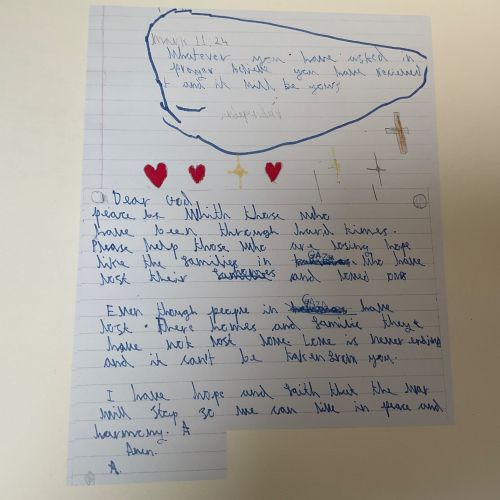 Mark 11,24
Whatever you have asked in
prayer believe you have recieved
it and it will be yours
Dear God
peace be Whith those who
have been through hard times.
Please help those who are losing hope
like the families in GAZA who have
lost their homes and loved ones
Even though people in GAZA have
lost. There homes and familie they
have not lost love. Love is never ending
and it can't be taken from you.
I have hope and faith that the war
will stop so we can live in peace and
harmony. A
Amen.
A